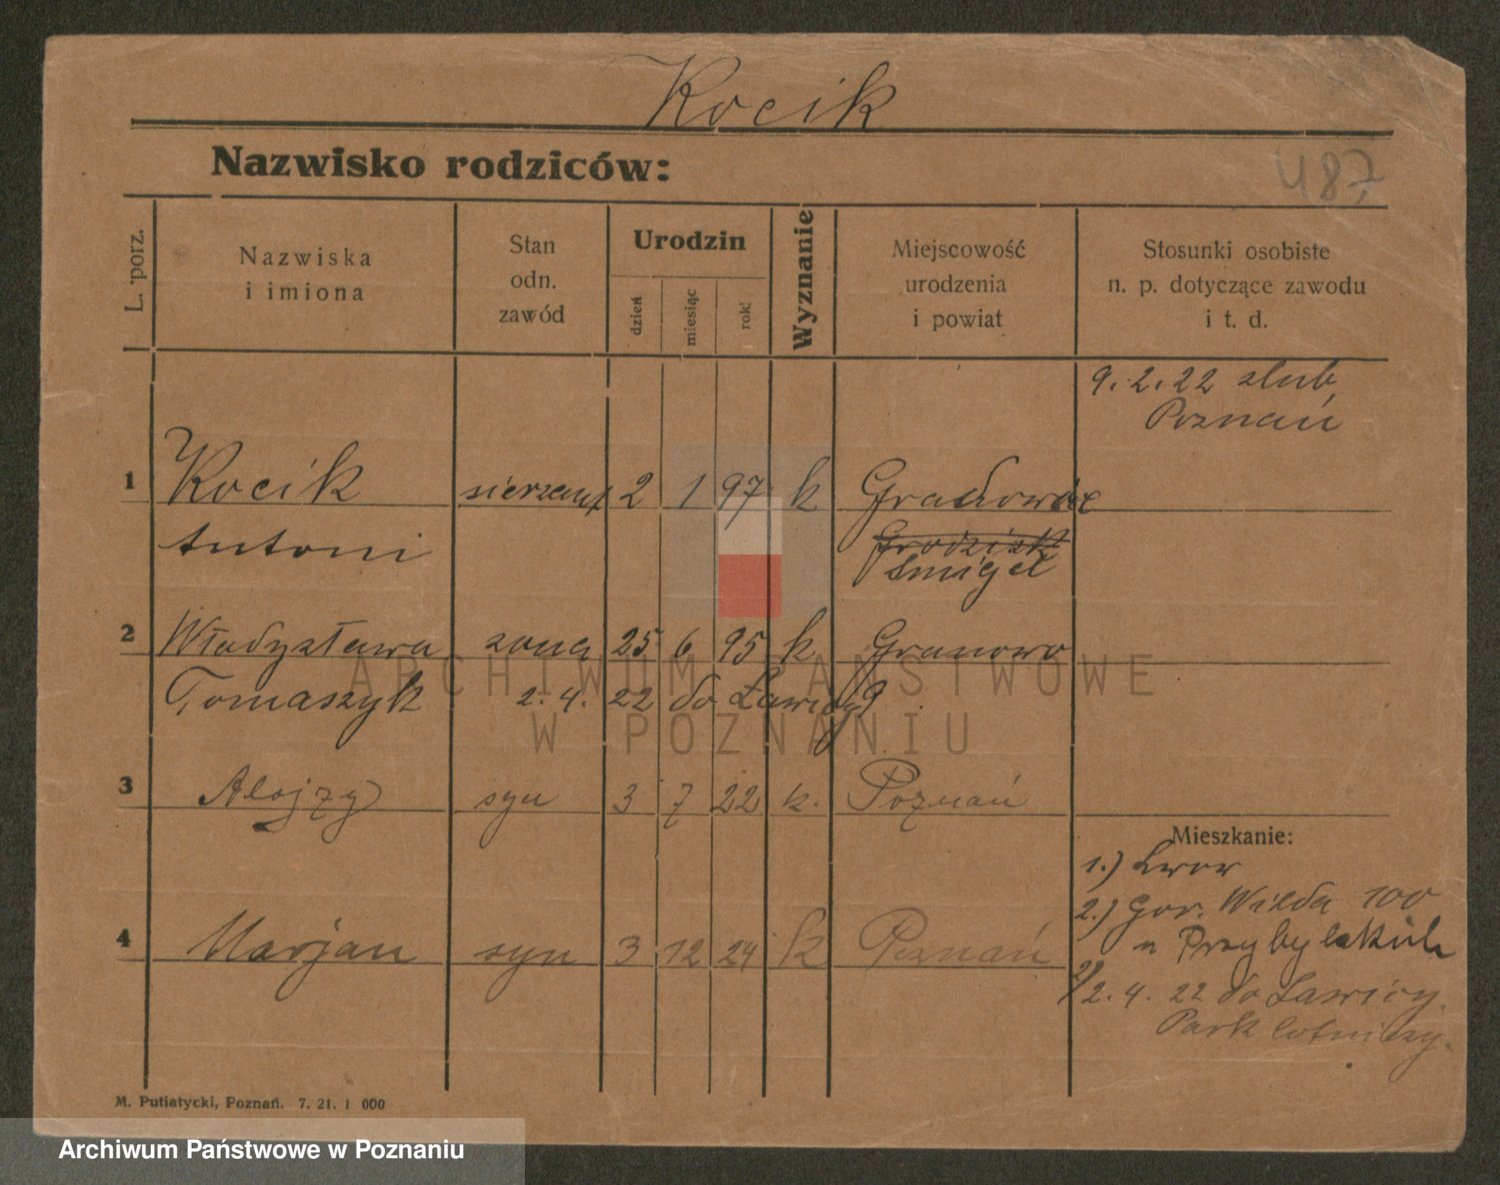 Kocik
Nazwisko rodziców:
487
L. porz.
Nazwiska
i imiona
Stan
odn.
zawód
Urodzin
dzień
miesiąc
rok
Wyznanie
Miejscowość
urodzenia
i powiat
Stosunki osobiste
n. p. dotyczące zawodu
i t. d.
9. 2. 22 slub
Poznań
1 Kocik sierzant 2 1 97 k
Antoni Grodzisk
Smigel
2 Władysława zona 25 6 95 k Granowo
Tomaszyk 2. 4. 22 do Ławicy
3 Alojzy syn 3 7 22 k. Poznań
Mieszkanie:
1.) Lwow
2.) Gor. Wilda 100
4 Marjan syn 3 12 24 k Poznań
u Przybylskich
2. 4. 22 do Lawicy.
Park lotniczy.
M. Putiatycki, Poznań. 7. 21. 1 000
ARCHIWUM PAŃSTWOWE
W POZNANIU
Archiwum Państwowe w Poznaniu